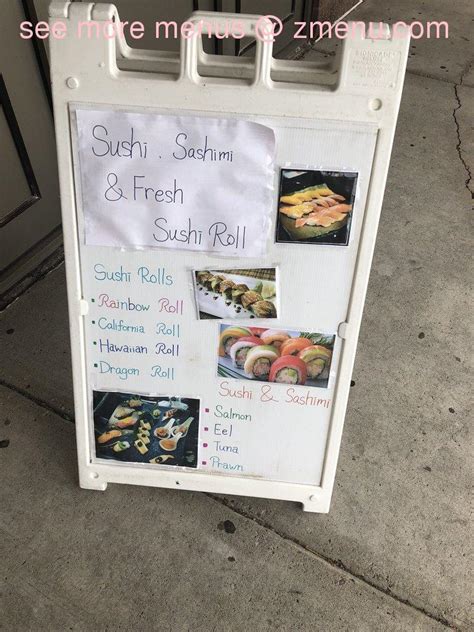 see more menus @ zmenu.com
Sushi . Sashimi
& Fresh
Sushi Roll
Sushi Rolls
• Rainbow Roll
• California Roll
• Hawaiian Roll
• Dragon Roll
Sushi & Sashimi
• Salmon
• Eel
• Tuna
• Prawn